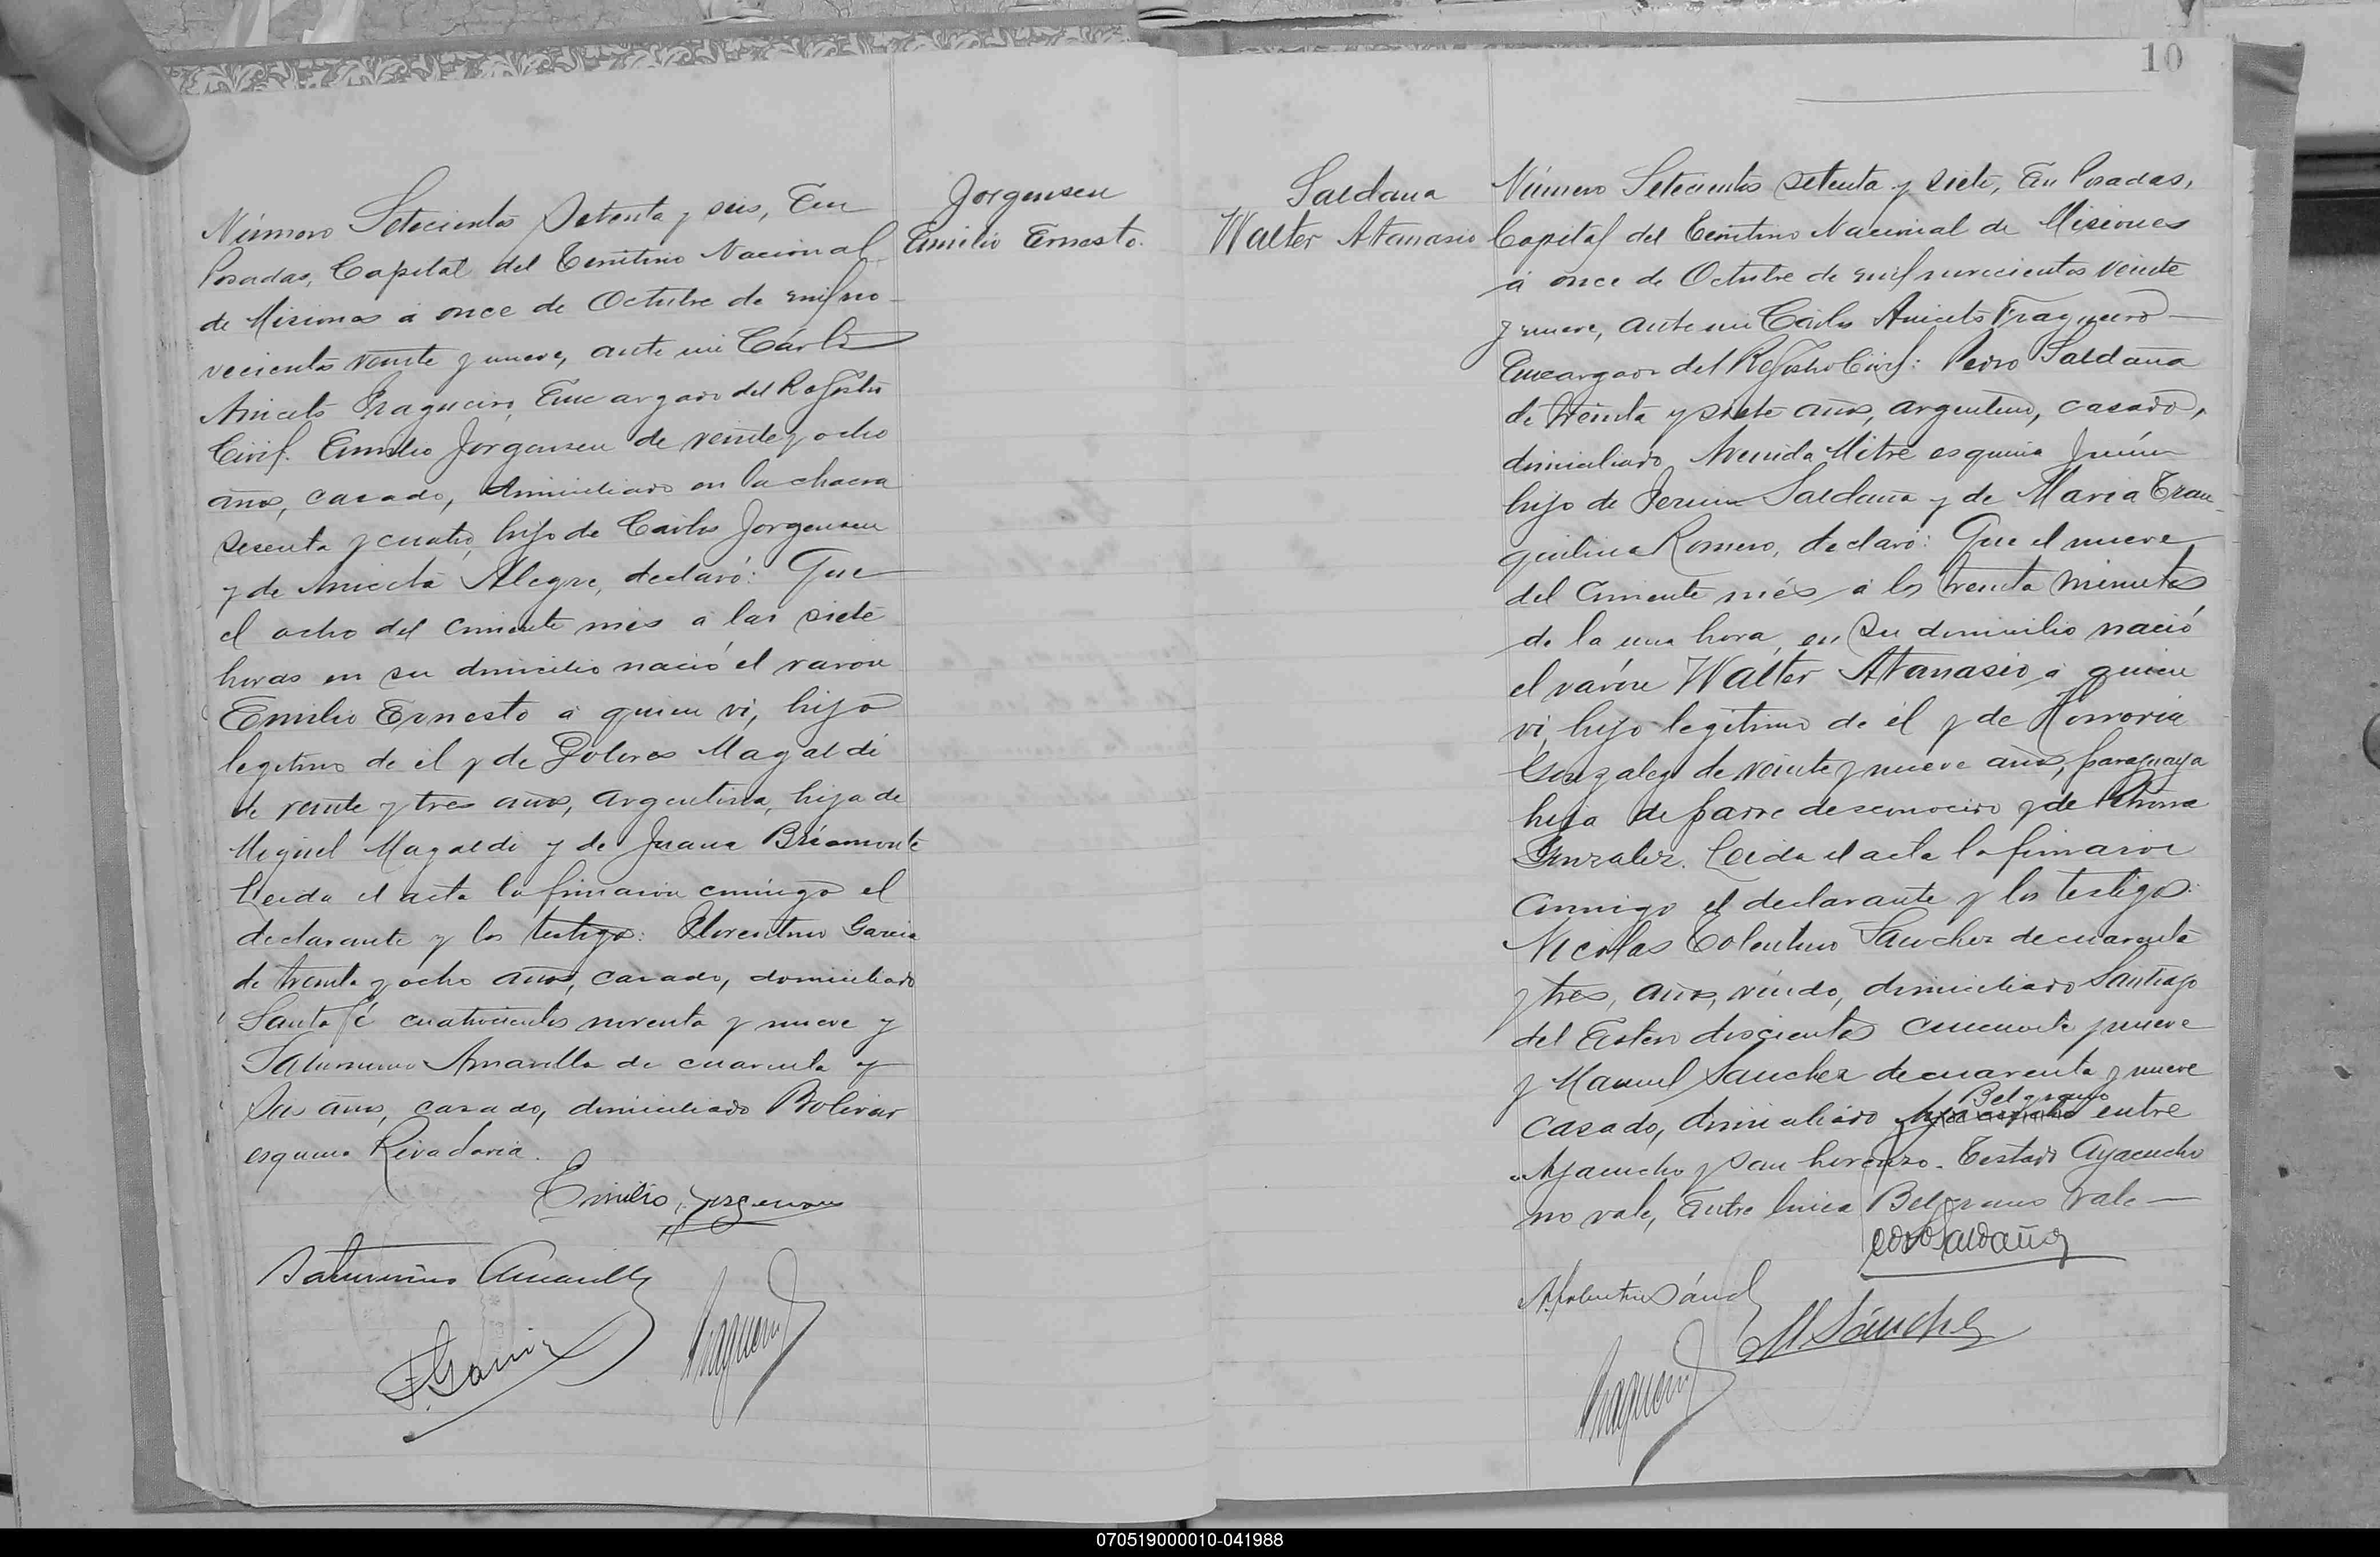 Número Setecientos Setenta y seis, En
Posadas, Capital del Territorio Nacional
de Misiones á once de Octubre de mil no-
vecientos veinte y nueve, ante mi Cárlos
Aniceto Fragueiro, Encargado del Registro
Civil. Emilio Jorgensen de veinte y ocho
años, casado, domiciliado en la chacra
sesenta y cuatro, hijo de Carlos Jorgensen
y de Aniceta Alegre, declaró: Que
el ocho del corriente mes a las siete
horas en su domicilio nació el varon
Emilio Ernesto a quien vi, hijo
legitimo de él y de Dolores Magaldi
de veinte y tres años, argentina, hija de
Miguel Magaldi y de Juana Briamonte
Leida el acta la firmaron conmigo el
declarante y los testigos: Florentino Garcia
de treinta y ocho años, casado, domiciliado
Santa fé cuatrocientos noventa y nueve y
Saturnino Amarilla de cuarenta y
seis años, casado, domiciliado Bolivar
esquina Rivadavia.
Emilio Jorgensen
Saturnino Amarilla
F. Garcia
Fragueiro
Jorgensen
Emilio Ernesto.
10
Saldana
Walter Atanasio
Número Setecientos setenta y siete, En Posadas,
Capital del Territorio Nacional de Misiones
á once de Octubre de mil novecientos veinte
y nueve, ante mi Carlos Aniceto Fragueiro
Encargado del Registro Civil: Pedro Saldaña
de treinta y siete años, argentino, casado,
domiciliado Avenida Mitre esquina Junín
hijo de Saldaña y de Maria Tran-
quilina Romero, declaró: Que el nueve
del corriente més á los treinta minutos
de la una hora, en su domicilio nació
el varón Walter Atanasio á quien
vi, hijo legitimo de él y de Honoria
Gonzalez de veinte y nueve años, paraguaya
hija de padre desconocido y de Petrona
Gonzalez. Leida el acta la firmaron
conmigo el declarante y los testigos:
Nicolas Tolentino Sanchez de cuarenta
y tres, años, viudo, domiciliado Santiago
del Estero doscientos cincuenta y nueve
y Manuel Sanchez de cuarenta y nueve
Belgrano
casado, domiciliado Ayacucho entre
Ayacucho y San Lorenzo. Testado Ayacucho
no vale, Entre linea Belgrano vale—
Pedro Saldaña
N. Tolentino Sánchez
M Sánchez
Fragueiro
070519000010-041988